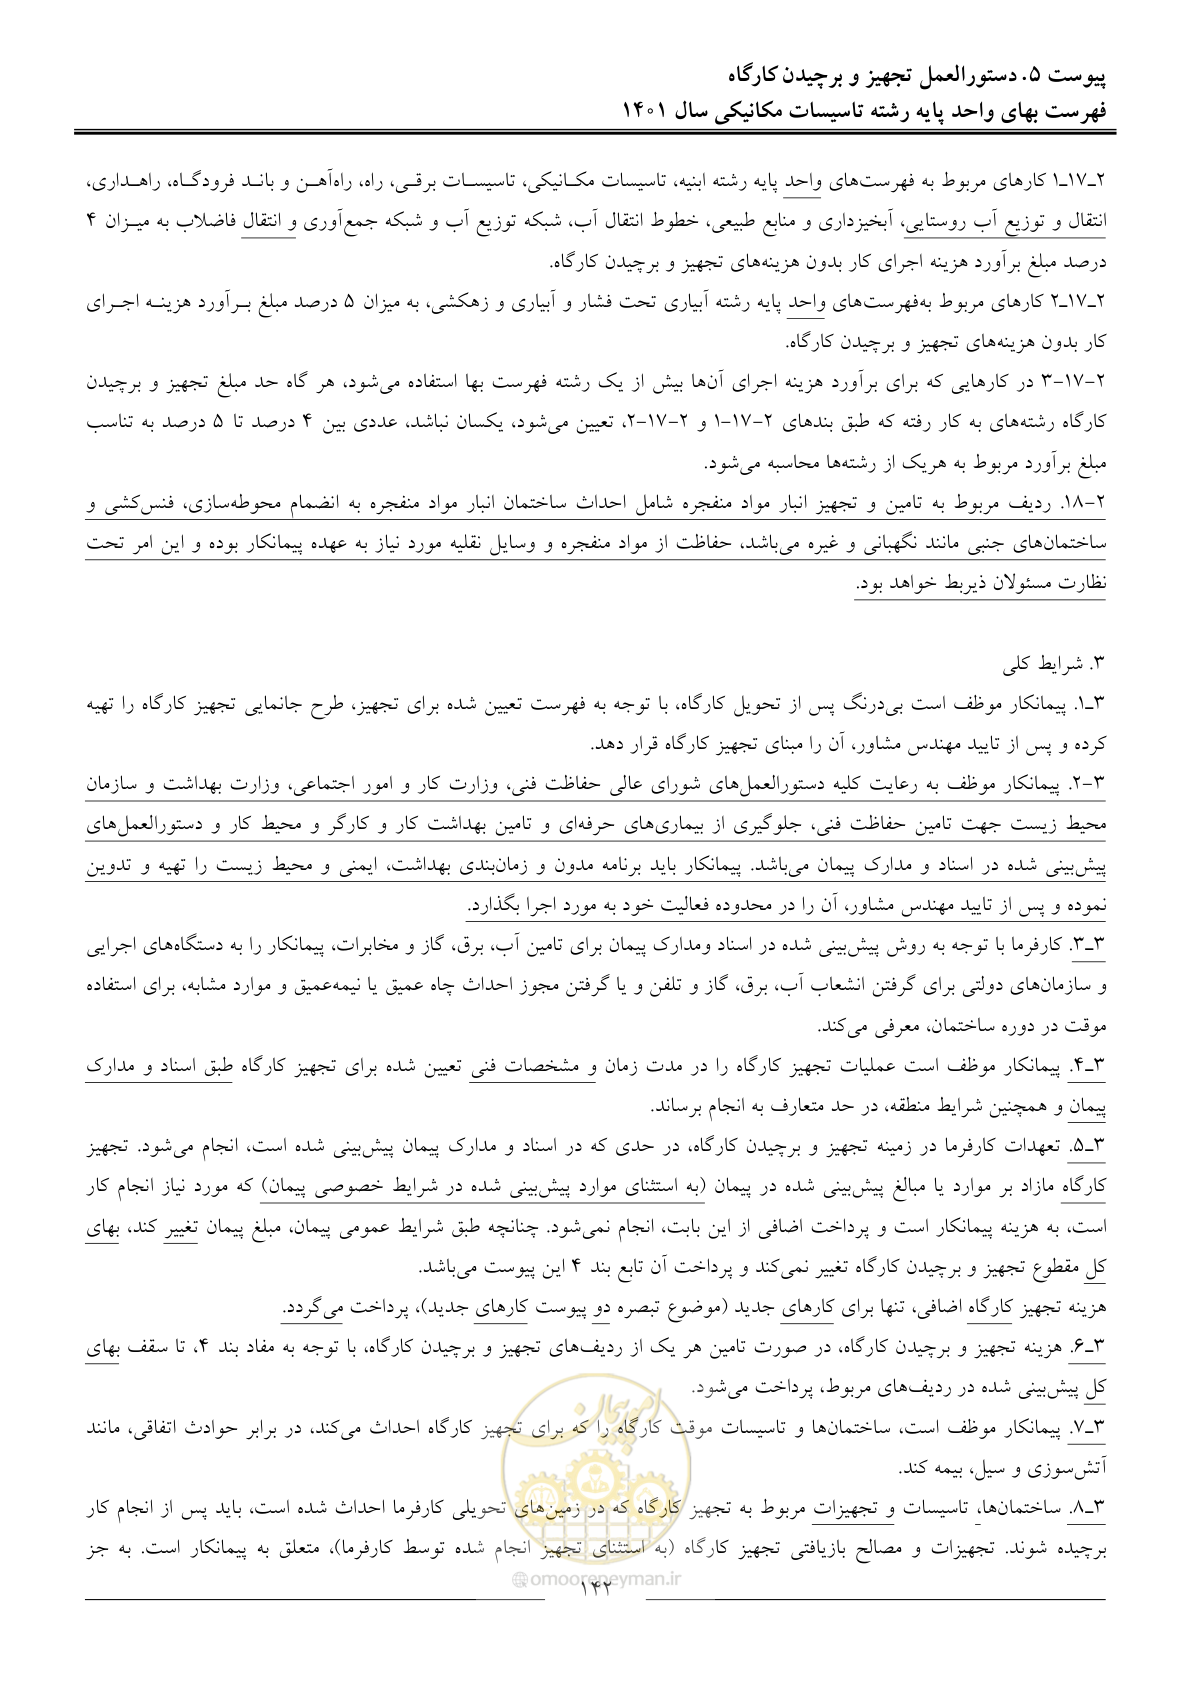 پیوست ۵. دستورالعمل تجهیز و برچیدن کارگاه
فهرست بهای واحد پایه رشته تاسیسات مکانیکی سال ۱۴۰۱
۲ـ۱۷ـ۱ کارهای مربوط به فهرست‌های واحد پایه رشته ابنیه، تاسیسات مکـانیکی، تاسیسـات برقـی، راه، راه‌آهـن و بانـد فرودگـاه، راهـداری،
انتقال و توزیع آب روستایی، آبخیزداری و منابع طبیعی، خطوط انتقال آب، شبکه توزیع آب و شبکه جمع‌آوری و انتقال فاضلاب به میـزان ۴
درصد مبلغ برآورد هزینه اجرای کار بدون هزینه‌های تجهیز و برچیدن کارگاه.
۲ـ۱۷ـ۲ کارهای مربوط به‌فهرست‌های واحد پایه رشته آبیاری تحت فشار و آبیاری و زهکشی، به میزان ۵ درصد مبلغ بـرآورد هزینـه اجـرای
کار بدون هزینه‌های تجهیز و برچیدن کارگاه.
۲-۱۷-۳ در کارهایی که برای برآورد هزینه اجرای آن‌ها بیش از یک رشته فهرست بها استفاده می‌شود، هر گاه حد مبلغ تجهیز و برچیدن
کارگاه رشته‌های به کار رفته که طبق بندهای ۲-۱۷-۱ و ۲-۱۷-۲، تعیین می‌شود، یکسان نباشد، عددی بین ۴ درصد تا ۵ درصد به تناسب
مبلغ برآورد مربوط به هریک از رشته‌ها محاسبه می‌شود.
۲-۱۸. ردیف مربوط به تامین و تجهیز انبار مواد منفجره شامل احداث ساختمان انبار مواد منفجره به انضمام محوطه‌سازی، فنس‌کشی و
ساختمان‌های جنبی مانند نگهبانی و غیره می‌باشد، حفاظت از مواد منفجره و وسایل نقلیه مورد نیاز به عهده پیمانکار بوده و این امر تحت
نظارت مسئولان ذیربط خواهد بود.
۳. شرایط کلی
۳ـ۱. پیمانکار موظف است بی‌درنگ پس از تحویل کارگاه، با توجه به فهرست تعیین شده برای تجهیز، طرح جانمایی تجهیز کارگاه را تهیه
کرده و پس از تایید مهندس مشاور، آن را مبنای تجهیز کارگاه قرار دهد.
۳-۲. پیمانکار موظف به رعایت کلیه دستورالعمل‌های شورای عالی حفاظت فنی، وزارت کار و امور اجتماعی، وزارت بهداشت و سازمان
محیط زیست جهت تامین حفاظت فنی، جلوگیری از بیماری‌های حرفه‌ای و تامین بهداشت کار و کارگر و محیط کار و دستورالعمل‌های
پیش‌بینی شده در اسناد و مدارک پیمان می‌باشد. پیمانکار باید برنامه مدون و زمان‌بندی بهداشت، ایمنی و محیط زیست را تهیه و تدوین
نموده و پس از تایید مهندس مشاور، آن را در محدوده فعالیت خود به مورد اجرا بگذارد.
۳ـ۳. کارفرما با توجه به روش پیش‌بینی شده در اسناد ومدارک پیمان برای تامین آب، برق، گاز و مخابرات، پیمانکار را به دستگاه‌های اجرایی
و سازمان‌های دولتی برای گرفتن انشعاب آب، برق، گاز و تلفن و یا گرفتن مجوز احداث چاه عمیق یا نیمه‌عمیق و موارد مشابه، برای استفاده
موقت در دوره ساختمان، معرفی می‌کند.
۳ـ۴. پیمانکار موظف است عملیات تجهیز کارگاه را در مدت زمان و مشخصات فنی تعیین شده برای تجهیز کارگاه طبق اسناد و مدارک
پیمان و همچنین شرایط منطقه، در حد متعارف به انجام برساند.
۳ـ۵. تعهدات کارفرما در زمینه تجهیز و برچیدن کارگاه، در حدی که در اسناد و مدارک پیمان پیش‌بینی شده است، انجام می‌شود. تجهیز
کارگاه مازاد بر موارد یا مبالغ پیش‌بینی شده در پیمان (به استثنای موارد پیش‌بینی شده در شرایط خصوصی پیمان) که مورد نیاز انجام کار
است، به هزینه پیمانکار است و پرداخت اضافی از این بابت، انجام نمی‌شود. چنانچه طبق شرایط عمومی پیمان، مبلغ پیمان تغییر کند، بهای
کل مقطوع تجهیز و برچیدن کارگاه تغییر نمی‌کند و پرداخت آن تابع بند ۴ این پیوست می‌باشد.
هزینه تجهیز کارگاه اضافی، تنها برای کارهای جدید (موضوع تبصره دو پیوست کارهای جدید)، پرداخت می‌گردد.
۳ـ۶. هزینه تجهیز و برچیدن کارگاه، در صورت تامین هر یک از ردیف‌های تجهیز و برچیدن کارگاه، با توجه به مفاد بند ۴، تا سقف بهای
کل پیش‌بینی شده در ردیف‌های مربوط، پرداخت می‌شود.
۳ـ۷. پیمانکار موظف است، ساختمان‌ها و تاسیسات موقت کارگاه را که برای تجهیز کارگاه احداث می‌کند، در برابر حوادث اتفاقی، مانند
آتش‌سوزی و سیل، بیمه کند.
۳ـ۸. ساختمان‌ها، تاسیسات و تجهیزات مربوط به تجهیز کارگاه که در زمین‌های تحویلی کارفرما احداث شده است، باید پس از انجام کار
برچیده شوند. تجهیزات و مصالح بازیافتی تجهیز کارگاه (به استثنای تجهیز انجام شده توسط کارفرما)، متعلق به پیمانکار است. به جز
امور پیمان
@omoorepeyman.ir
۱۴۲